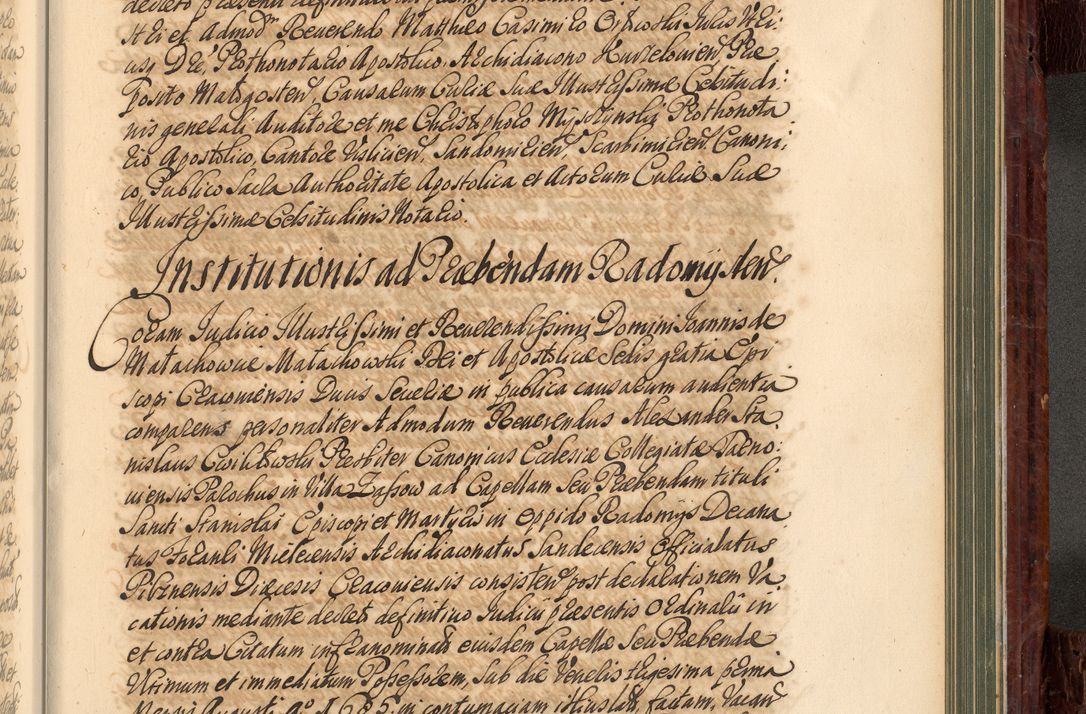 decreto præsenti definitivo
Sti et Admod. Reuerendo Mattheo Casimiro
usq Dre, Prothonotario Apostolico, Archidiacono Kurzelouien, Præ
posito Malogosten, Causarum Curiæ Suæ Illustrissimæ Celsitudi:
nis generali Auditore et me Christophoro Mystzynski Prothonota
rio Apostolico, Cantore Vislicien, Sandomirien, Scarbimirien, Canoni:
co, Publico Sacra Authoritate Apostolica et Actorum Curiæ Suæ
Illustrissimæ Celsitudinis Notario.
Institutionis ad Præbendam Radomyslen.
Coram Judicio Illustrissimi et Reuerendissimi Domini Joannis de
Małachowice Małachowski Dei et Apostolicæ Sedis gratia Epi
scopi Cracouiensis Ducis Seueriæ in publica causarum audientia
comparens personaliter Admodum Reuerendus Alexander Sta
nislaus Presbiter Canonicus Ecclesiæ Collegiatæ Tarno:
uiensis Parochus in Villa Zassow ad Capellam Seu Præbendam tituli
Sancti Stanislai Episcopi et Martyris in Oppido Radomÿs Decana
tus Foranei Mielecensis Archidiaconatus Sandecensis Officialatus
Pilsnensis Diæcesis Cracouiensis consisten, post declarationem Va
cationis mediante decreto definitiuo Judicij præsentis Ordinarii in
et contra Citatum infranominand. eiusdem Capellæ Seu Præbendæ
Vltimum et immediatum Possessorem, Sub die Veneris trigesima prima
Mensis Augusti Aº 1685 in contumaciam illius lat. factam, Vacan